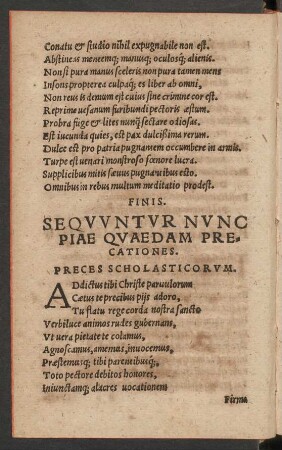 Conatu & studio nihil expugnabile non est.
Abstineas mentemq; manusq; oculosq; alienis.
Non si pura manus sceleris non pura tamen mens
Insons propterea culpaq; es liber ab omni,
Non reus is demum est cuius sine crimine cor est.
Reprime uesanum furibundi pectoris æstum.
Probra fuge & lites nunq̃ sectare odiosas.
Est iucunda quies, est pax dulcissima rerum.
Dulce est pro patria pugnantem occumbere in armis.
Turpe est uenari monstroso fœnore lucra.
Supplicibus mitis sæuus pugnantibus esto.
Omnibus in rebus multum meditatio prodest.
FINIS.
SEQVVNTVR NVNC
PIAE QVAEDAM PRE-
CATIONES.
PRECES SCHOLASTICORVM.
ADdictus tibi Christe paruulorum
Cœtus te precibus pijs adoro,
Tu flatu rege corda nostra sancto
Verbi luce animos rudes gubernans,
Vt uera pietate te colamus,
Agnoscamus, amemus, inuocemus,
Præstemusq; tibi parentibusq;,
Toto pectore debitos honores,
Iniunctamq; alacres uocationem
Firma